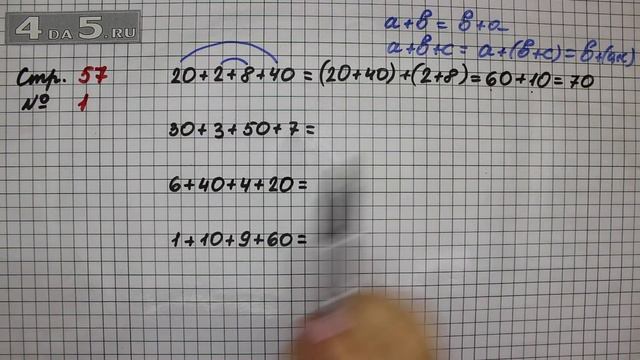 4 DA 5.RU
a+в = в+a
a+в+c = a+(в+c) = в+(a+c)
Стр. 57
20+2+8+40=(20+40)+(2+8)=60+10=70
№ 1
30+3+50+7=
6+40+4+20=
1+10+9+60=